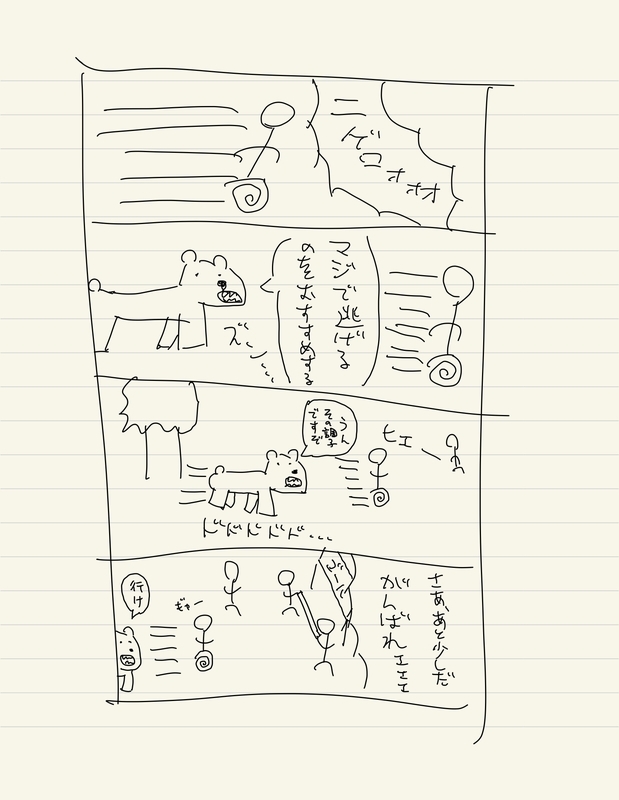 ニゲロォォオ
マジで逃げる
のをおすすめする
ズ…
ヒエー
うん
その調子
ですぞ
ドドドドド…
さあ、あと少しだ
がんばれェェェ
ギャー
行け